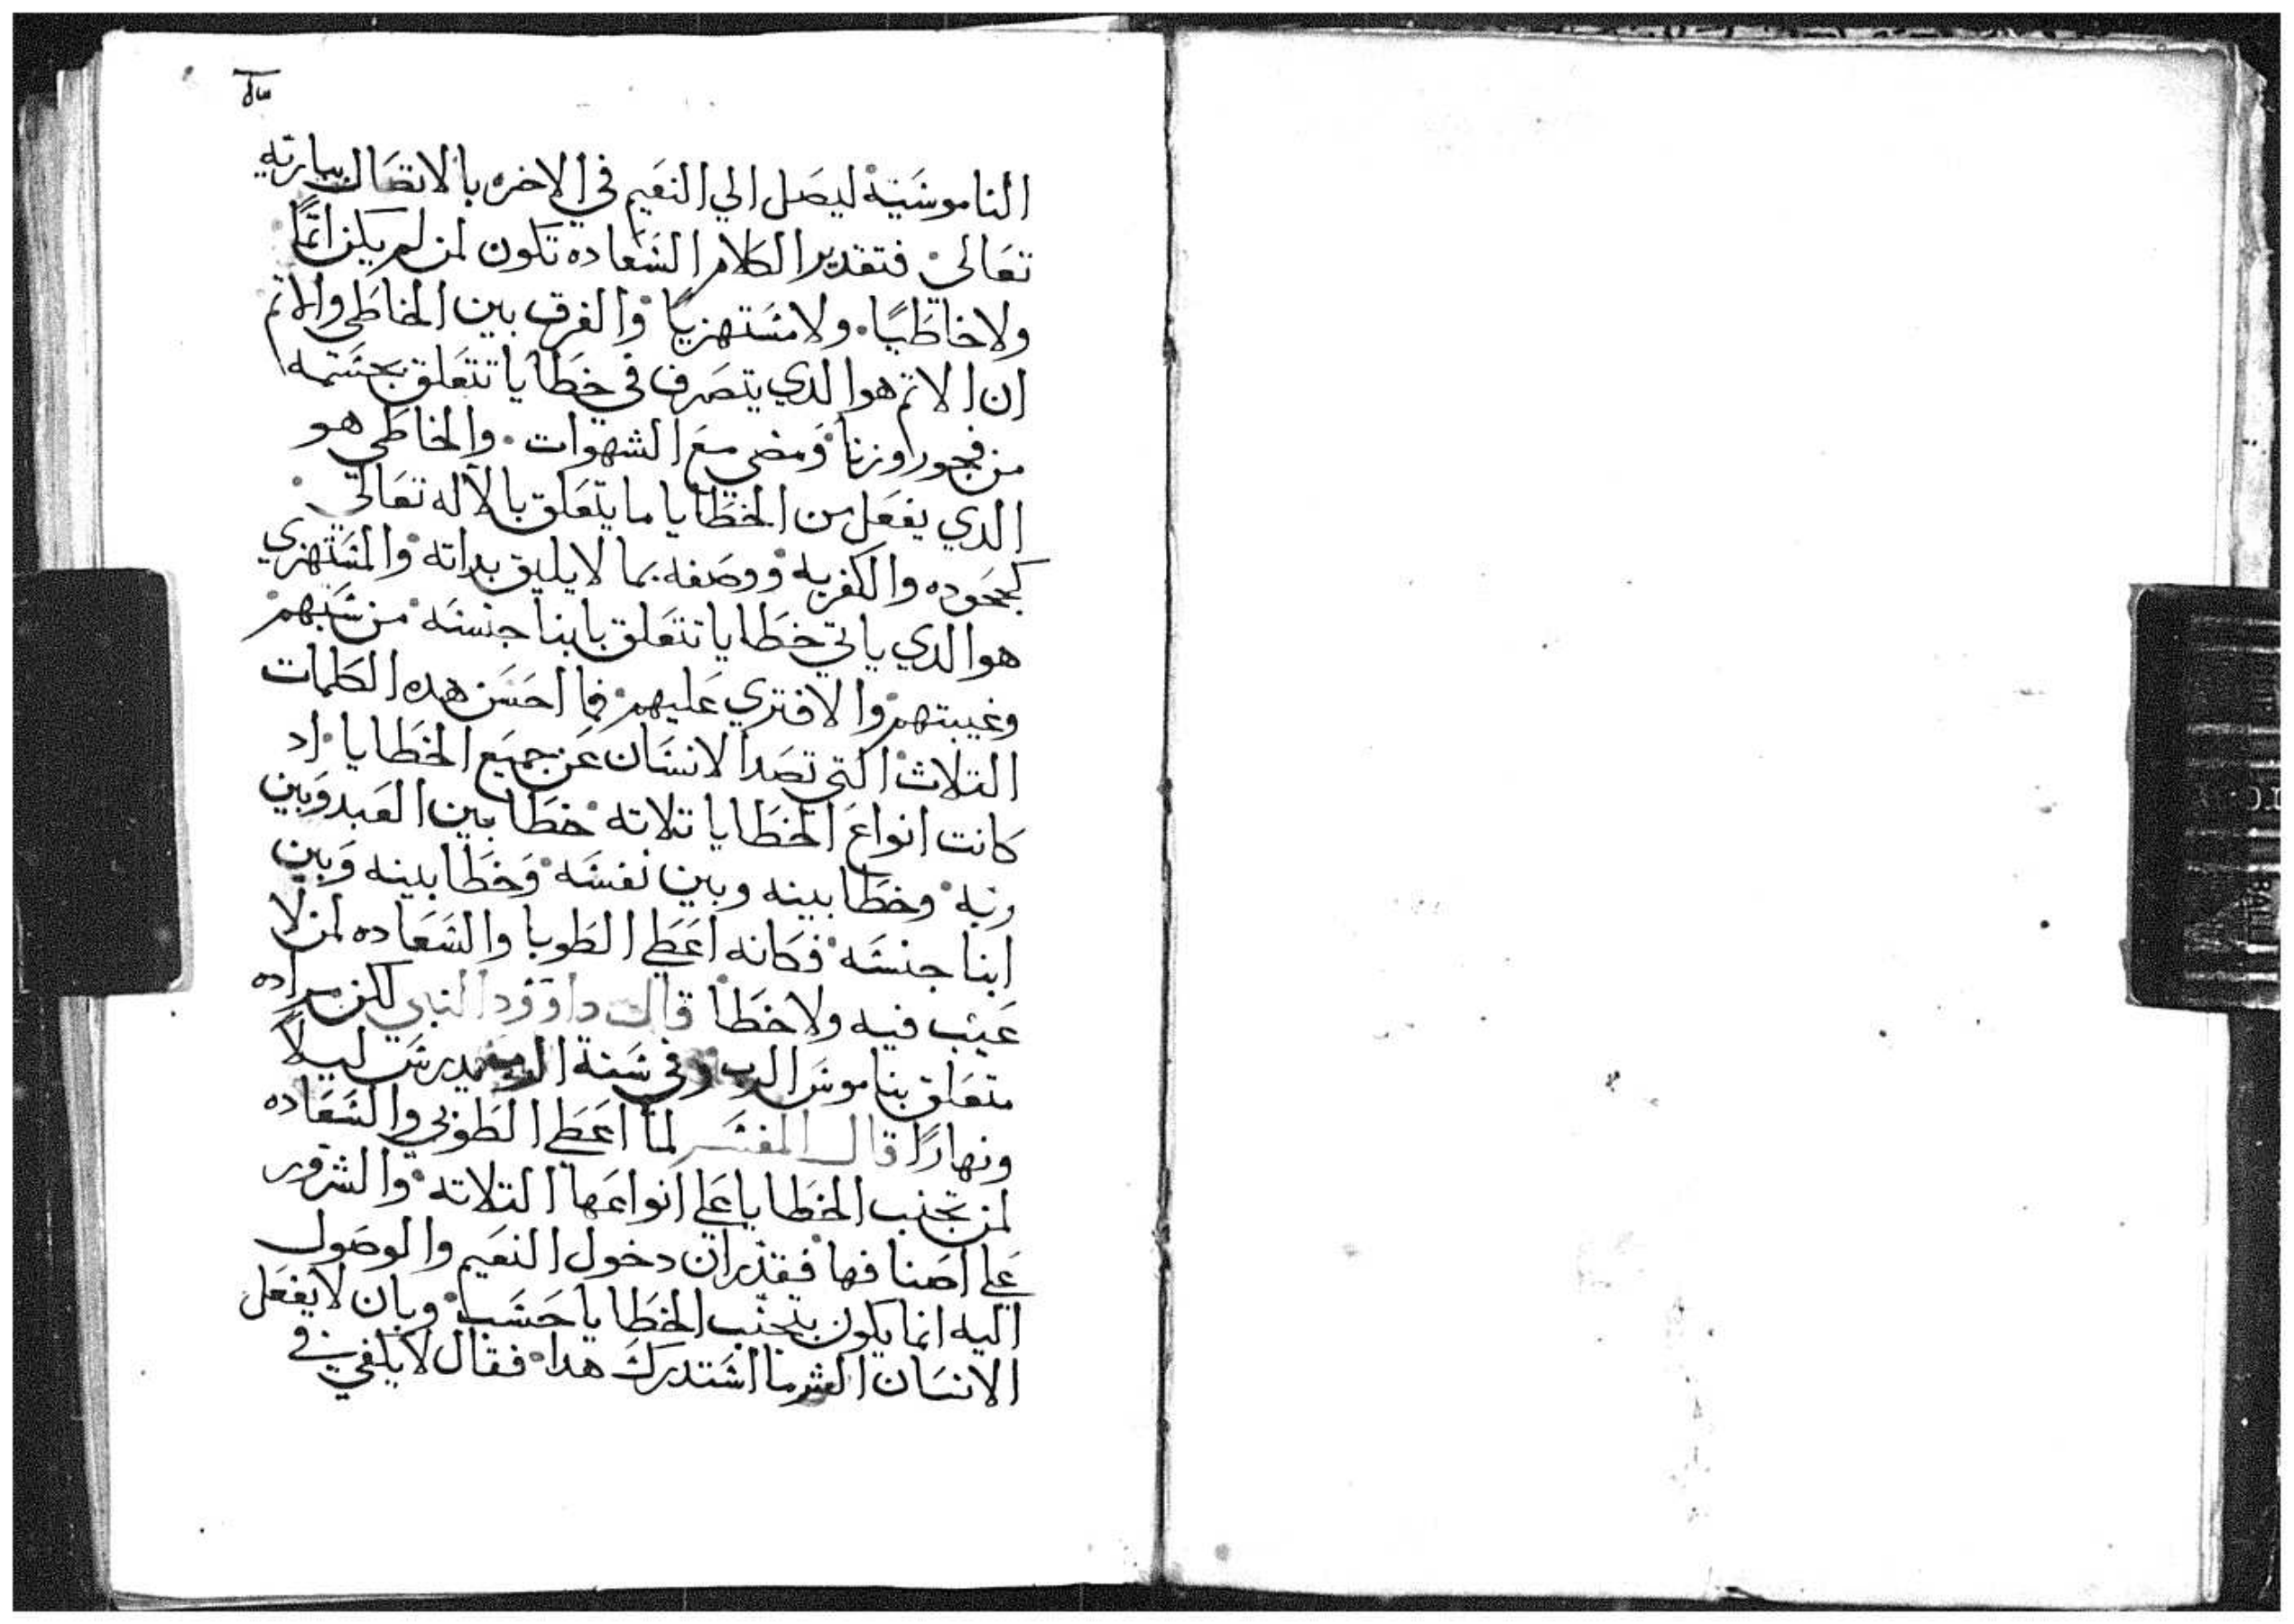 الناموسية ليصل الي النعيم في الاخره بالاتصال بباريه
تعالي فتقدير الكلام السعاده تكون لمن لم يكن اتمًا
ولا خاطيًا ولا مستهزيًا والفرق بين الخاطي والاتم
ان الاتم هو الدي يتصرف في خطايا تتعلق بجسمه
من فجور اوزنا ومضي مع الشهوات والخاطي هو
الدي يفعل من الخطايا ما يتعلق بالاله تعالي
كجحوده والكفر به ووصفه بما لا يليق بداته والمستهزي
هو الدي ياتي خطايا تتعلق بابنا جنسه من سبهم
وغيبتهم والافتري عليهم فما احسن هده الكلمات
التلاث التي تصد الانسان عن جميع الخطايا اد
كانت انواع الخطايا تلاته خطا بين العبد وبين
ربه وخطا بينه وبين نفسه وخطا بينه وبين
ابنا جنسه فكانه اعطي الطوبا والسعاده لمن لا
عيب فيه ولا خطا قال داوود النبي لكن مراده
متعلق بناموس الرب وفي سنة يدرس ليلاً
ونهارًا قال المفسر لما اعطي الطوبي والسعاده
لمن تجنب الخطايا علي انواعها التلاته والشرور
علي اصنافها فقدر ان دخول النعيم والوصول
اليه انما يكون بتجنب الخطايا حسب وبان لا يفعل
الانسان الشر ما استدرك هدا فقال لا يكفي في